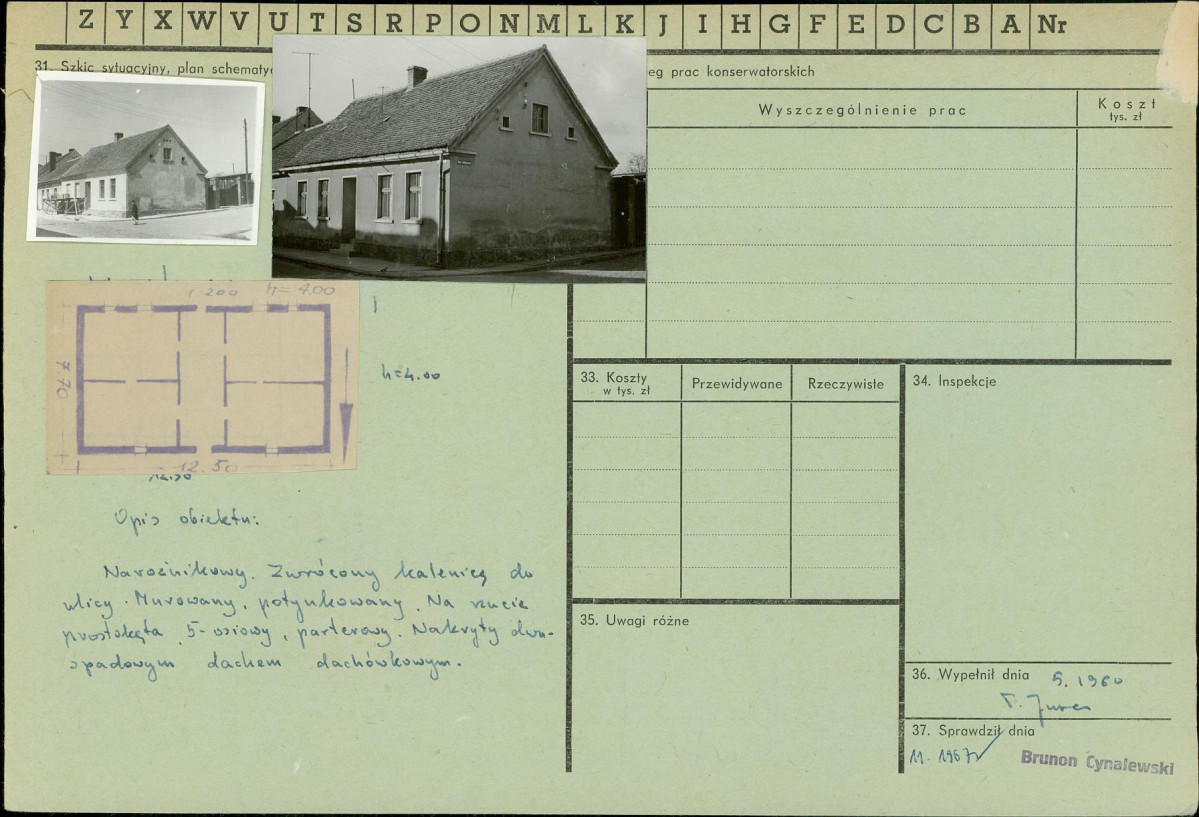 Z Y X W V U T S R P O N M L K J I H G F E D C B A Nr
31. Szkic sytuacyjny, plan schematy
eg prac konserwatorskich
Wyszczególnienie prac
Koszt
tys. zł
1:200 h=4.00
7.70
h=4.00
12.50
12.50
33. Koszty
w tys. zł
Przewidywane
Rzeczywiste
34. Inspekcje
Opis obiektu:
Narożnikowy. Zwrócony kalenicą do
ulicy. Murowany, potynkowany. Na rzucie
prostokąta, 5-osiowy, parterowy. Nakryty dwu-
spadowym dachem dachówkowym.
35. Uwagi różne
36. Wypełnił dnia 5.1960
37. Sprawdził dnia
11.1967
Brunon Cynalewski